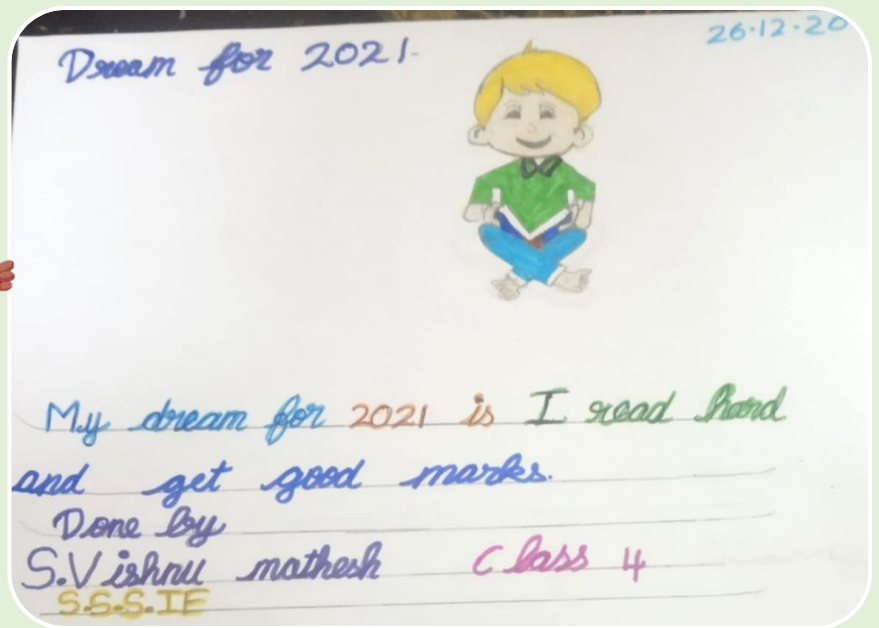 26.12.20
Dream for 2021.
My dream for 2021 is I read hard
and get good marks.
Done by
S.Vishnu mathesh Class 4
S.S.S.IE